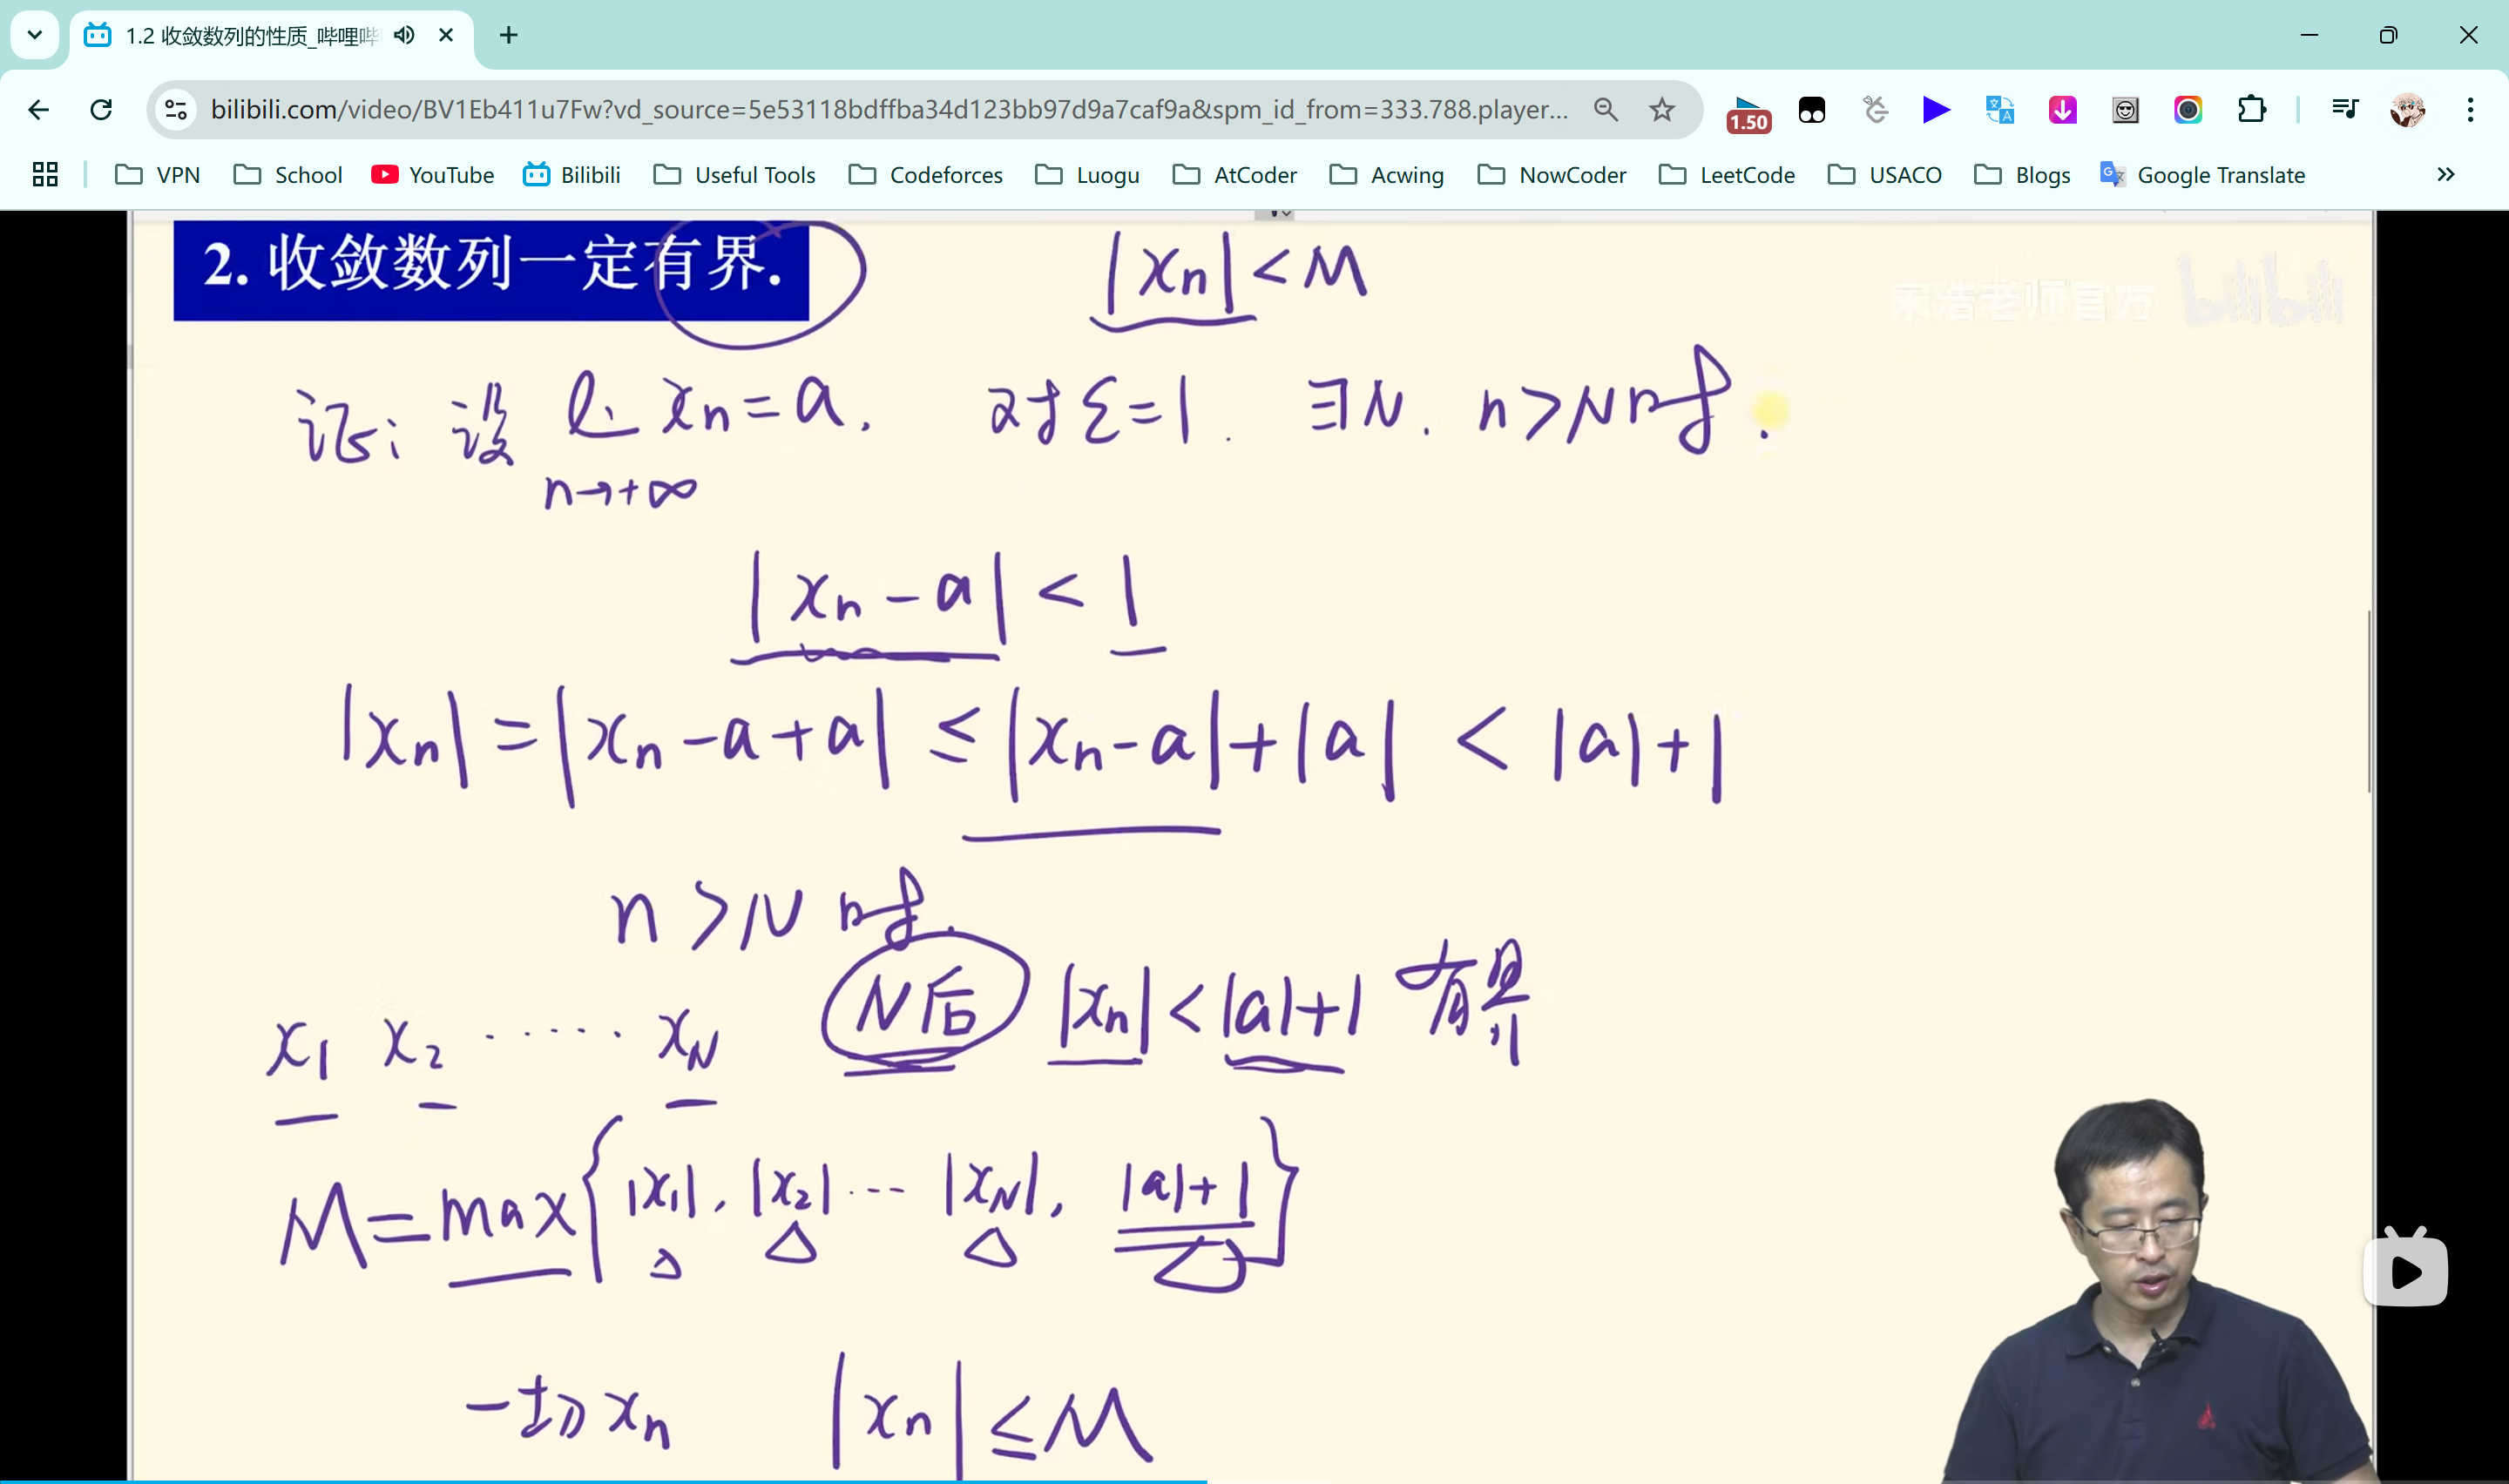 1.2 收敛数列的性质_哔哩哔
bilibili.com/video/BV1Eb411u7Fw?vd_source=5e53118bdffba34d123bb97d9a7caf9a&spm_id_from=333.788.player...
1.50
VPN School YouTube Bilibili Useful Tools Codeforces Luogu AtCoder Acwing NowCoder LeetCode USACO Blogs Google Translate
2. 收敛数列一定有界.
|xn| < M
宋浩老师官方 bilibili
证: 设 lim xn = a, 对 ε=1. ∃N. n>N时.
n→+∞
|xn - a| < 1
|xn| = |xn - a + a| ≤ |xn - a| + |a| < |a| + 1
n > N 时.
x1 x2 ...... xN N后 |xn| < |a|+1 有界
M = max{|x1|, |x2| ... |xN|, |a|+1}
一切 xn |xn| ≤ M